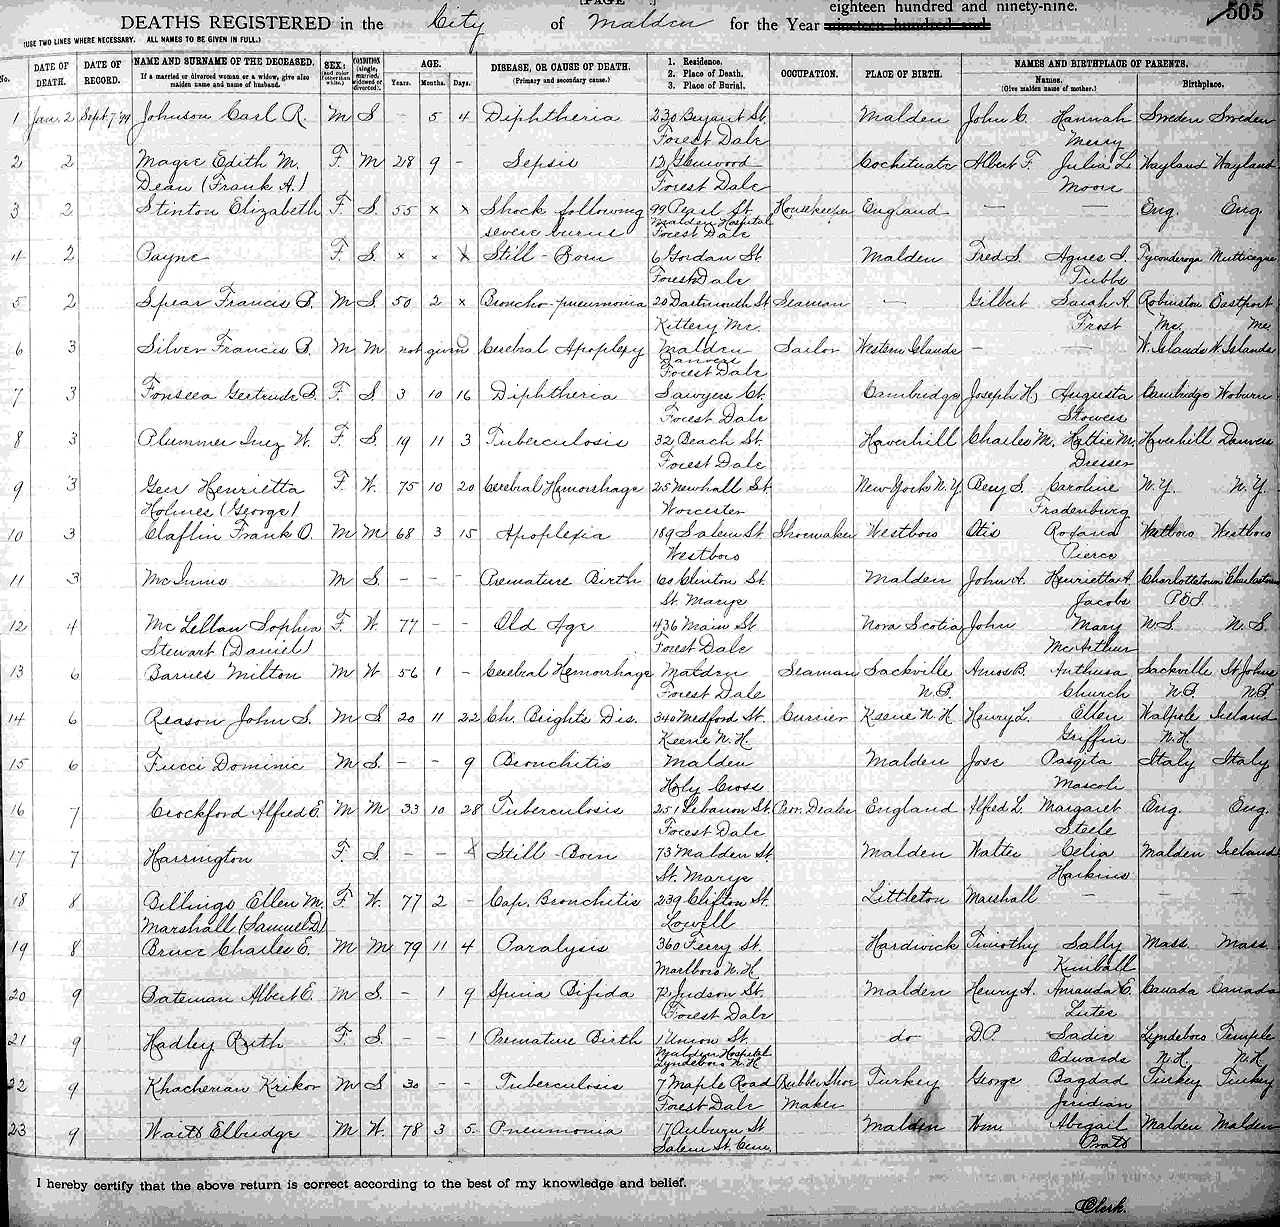 eighteen hundred and ninety-nine.
DEATHS REGISTERED in the City of Malden for the Year nineteen hundred and
505
(USE TWO LINES WHERE NECESSARY. ALL NAMES TO BE GIVEN IN FULL.)
No. DATE OF DEATH. DATE OF RECORD. NAME AND SURNAME OF THE DECEASED. If a married or divorced woman or a widow, give also maiden name and name of husband. SEX: (and color if other than white.) CONDITION (single, married, widowed or divorced). AGE. Years. Months. Days. DISEASE, OR CAUSE OF DEATH. (Primary and secondary cause.) 1. Residence. 2. Place of Death. 3. Place of Burial. OCCUPATION. PLACE OF BIRTH. NAMES AND BIRTHPLACE OF PARENTS. Names. (Give maiden name of mother.) Birthplace.
1 Jan. 2 Sept. 7 '99 Johnson Carl R. M S - 5 4 Diphtheria 230 Bryant St. Malden John C. Hannah Sweden Sweden
Forest Dale Merry
2 2 Magee Edith M. F. M 28 9 - Sepsis 12 Glenwood Cochituate Albert F. Julia L. Wayland Wayland
Dean (Frank A.) Forest Dale Moore
3 2 Stinton Elizabeth F. S. 55 x x Shock following 99 Pearl St. Housekeeper England — — Eng. Eng.
severe burns Malden Hospital
Forest Dale
4 2 Payne F. S. x x x Still-Born 6 Gordan St. Malden Fred S. Agnes I. Ticonderoga
Forest Dale Tubbs
5 2 Spear Francis B. M S. 50 2 x Broncho-pneumonia 20 Dartmouth St. Seaman — Gilbert Sarah A. Robinston Eastport
Kittery Me. Frost Me. Me.
6 3 Silver Francis B. M M not given Cerebral Apoplexy Malden Sailor Western Islands — — W. Islands W. Islands
Danvers
Forest Dale
7 3 Fonseca Gertrude B. F. S. 3 10 16 Diphtheria Sawyer Ct. Cambridge Joseph H. Augusta Cambridge Woburn
Forest Dale Stowers
8 3 Plummer Inez W. F. S. 19 11 3 Tuberculosis 32 Beach St. Haverhill Charles M. Hattie M. Haverhill Danvers
Forest Dale Dresser
9 3 Geer Henrietta F. W. 75 10 20 Cerebral Hemorrhage 25 Newhall St. New York N.Y. Benj. S. Caroline N.Y. N.Y.
Holmes (George) Worcester Fradenburg
10 3 Claflin Frank O. M M 68 3 15 Apoplexia 189 Salem St. Shoemaker Westboro Otis Rodana Westboro Westboro
Westboro Pierce
11 3 McInnis M S. - - - Premature Birth 60 Clinton St. Malden John A. Henrietta A. Charlottetown Charlestown
St. Marys Jacobs P.E.I.
12 4 McLellan Sophia F. W. 77 - - Old Age 436 Main St. Nova Scotia John Mary N.S. N.S.
Stewart (Daniel) Forest Dale McArthur
13 6 Barnes Milton M W 56 1 - Cerebral Hemorrhage Malden Seaman Sackville Amos B. Anthusa Sackville St. Johns
Forest Dale N.B. Church N.B. N.B.
14 6 Reason John S. M S 20 11 22 Ch. Brights Dis. 340 Medford St. Currier Keene N.H. Henry L. Ellen Walpole Ireland
Keene N.H. Griffin N.H.
15 6 Fucci Dominic M S. - - 9 Bronchitis Malden Malden Jose Pasqita Italy Italy
Holy Cross Mascoli
16 7 Crockford Alfred E. M M 33 10 28 Tuberculosis 251 Lebanon St. Prov. Dealer England Alfred L. Margaret Eng. Eng.
Forest Dale Steele
17 7 Harrington F. S - - x Still-Born 73 Malden St. Malden Walter Celia Malden Ireland
St. Marys Harkins
18 8 Billings Ellen M. F W. 77 2 - Cap. Bronchitis 239 Clifton St. Littleton Marshall — — —
Marshall (Samuel D) Lowell
19 8 Bruce Charles E. M M 79 11 4 Paralysis 360 Ferry St. Hardwick Timothy Sally Mass. Mass.
Marlboro N.H. Kimball
20 9 Bateman Albert E. M S. - 1 9 Spina Bifida 72 Judson St. Malden Henry A. Amanda E. Canada Canada
Forest Dale Lutes
21 9 Hadley Ruth F. S. - - 1 Premature Birth 1 Union St. do D.P. Sadie Lyndeboro Temple
Malden Hospital Edwards N.H. N.H.
Lyndeboro N.H.
22 9 Khacherian Krikor M S 30 - - Tuberculosis 7 Maple Road Rubber Shoe Turkey George Bagdad Turkey Turkey
Forest Dale Maker Juridian
23 9 Waitt Elbridge M W. 78 3 5 Pneumonia 17 Auburn St. Malden Wm. Abigail Malden Malden
Salem St. Cem. Pratt
I hereby certify that the above return is correct according to the best of my knowledge and belief.
Clerk.